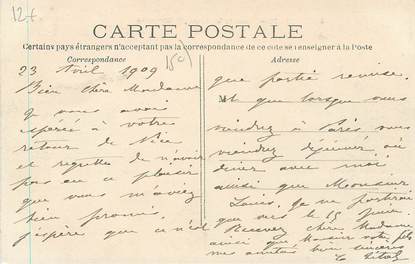 12 €
CARTE POSTALE
Certains pays étrangers n'acceptant pas la correspondance de ce côté se renseigner à la Poste
Correspondance
Adresse
1501
23 Avril 1909
Bien chère Madame
Je vous avais
espéré à votre
retour de Nice
et regrette de n'avoir
pas eu ce plaisir
que vous m'aviez
bien promis.
j'espère que ce n'est
que partie remise.
et que lorsque vous
viendrez à Paris vous
viendrez déjeuner ou
diner avec moi.
ainsi que Monsieur
Louis. Je ne partirai
que vers le 15 Juin
Recevez chère Madame
ainsi que Monsieur votre fils
mes amitiés bien sincères